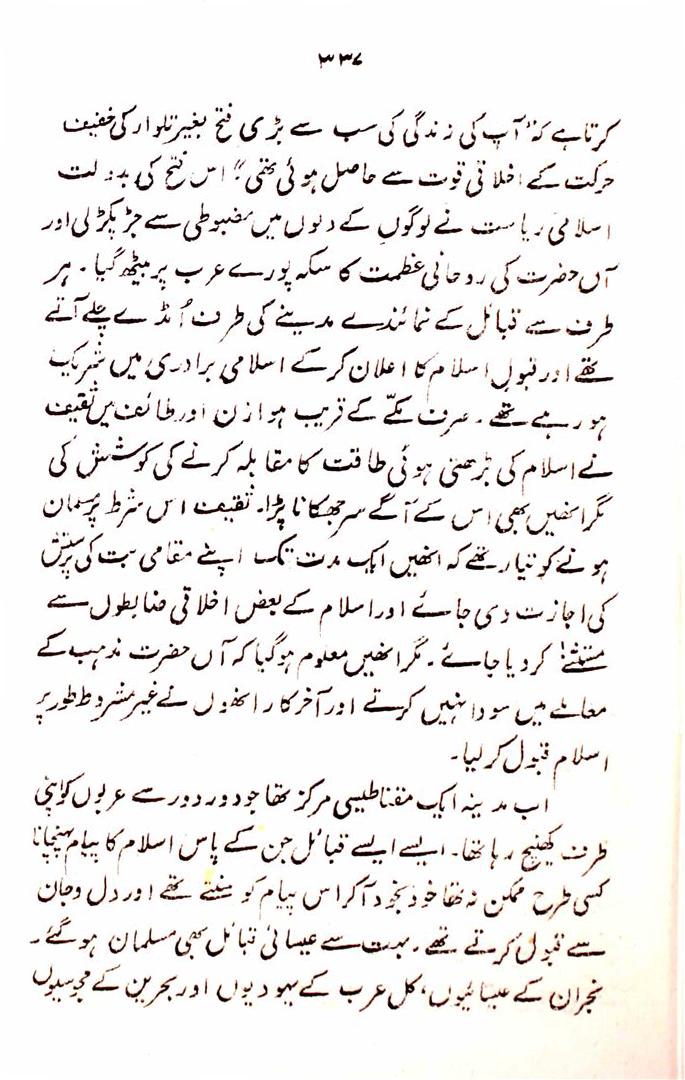 ۳۳۷
کرتا ہے کہ "آپ کی زندگی کی سب سے بڑی فتح بغیر تلوار کی خفیف
حرکت کے اخلاقی قوت سے حاصل ہوئی تھی"! اس فتح کی بدولت
اسلامی ریاست نے لوگوں کے دلوں میں مضبوطی سے جڑ پکڑ لی اور
آں حضرت کی روحانی عظمت کا سکہ پورے عرب پر بیٹھ گیا۔ ہر
طرف سے قبائل کے نمائندے مدینے کی طرف اُمڈے چلے آتے
تھے اور قبولِ اسلام کا اعلان کر کے اسلامی برادری میں شریک
ہو رہے تھے۔ صرف مکّے کے قریب ہوازن اور طائف میں ثقیف
نے اسلام کی بڑھتی ہوئی طاقت کا مقابلہ کرنے کی کوشش کی
مگر انھیں بھی اس کے آگے سر جھکانا پڑا۔ ثقیف اس شرط پر مسلمان
ہونے کو تیار تھے کہ انھیں ایک مدت تک اپنے مقامی بت کی پرستش
کی اجازت دی جائے اور اسلام کے بعض اخلاقی ضابطوں سے
مستثنیٰ کر دیا جائے۔ مگر انھیں معلوم ہو گیا کہ آں حضرت مذہب کے
معاملے میں سودا نہیں کرتے اور آخر کار انھوں نے غیر مشروط طور پر
اسلام قبول کر لیا۔
اب مدینہ ایک مقناطیسی مرکز تھا جو دور دور سے عربوں کو اپنی
طرف کھینچ رہا تھا۔ ایسے ایسے قبائل جن کے پاس اسلام کا پیام پہنچانا
کسی طرح ممکن نہ تھا خود بخود آکر اس پیام کو سنتے تھے اور دل و جان
سے قبول کرتے تھے۔ بہت سے عیسائی قبائل بھی مسلمان ہو گئے۔
نجران کے عیسائیوں، کل عرب کے یہودیوں اور بحرین کے مجوسیوں